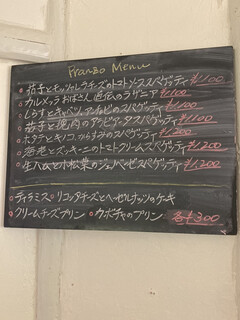 Pranzo Menu
• 茄子とモッツァレラチーズのトマトソーススパゲッティ ¥1,100
• カルメッラおばさん直伝のラザニア ¥1,100
• しらすとキャベツ、アンチョビのスパゲッティ ¥1,100
• 茄子と鶏肉のアラビアータスパゲッティ ¥1,100
• ホタテとキノコ、からすみのスパゲッティ ¥1,200
• 海老とズッキーニのトマトクリームスパゲッティ ¥1,200
• 生ハムと小松菜のジェノベーゼスパゲッティ ¥1,200
• ティラミス • リコッタチーズとヘーゼルナッツのケーキ
• クリームチーズプリン • カボチャのプリン 各¥300